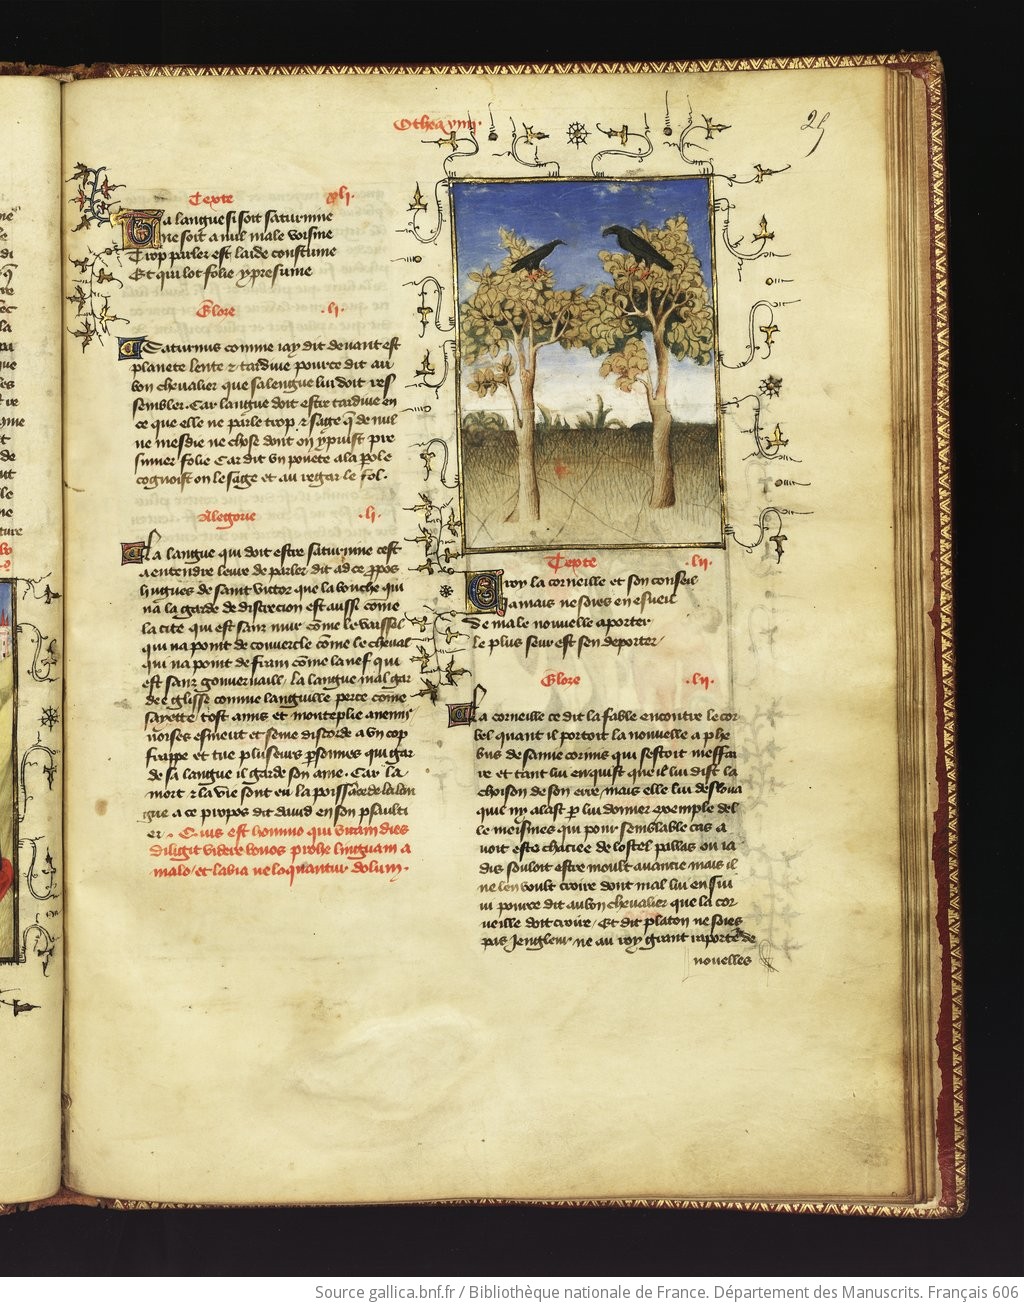 Othea xviij.
25
Texte xlj.
Ta langue si soit saturnine
Ne soit a nul male voisine
Trop parler est laide coustume
Et qui lot folie y presume
Glose .lj.
Saturnus comme jay dit devant est
planete lente & tardive pource dit au
bon chevalier que sa lengue lui doit res
sembler. Car langue doit estre tardive en
ce que elle ne parle trop & sage q̄ de nul
ne mesdie ne chose dont on y puist pre
sumer folie Car dit un pouete a la p̄ole
cognoist on le sage et au regar le fol.
Alegorie .lj.
La langue qui doit estre saturnine cest
a entendre lente de parler dit ad ce p̄pos
hugues de saint victor que la bouche qui
na la garde de discrecion est aussi cōme
la cité qui est sanz mur cōme le vaissel
qui na point de couvercle cōme le cheval
qui na point de frain cōme la nef qui
est sanz gouvernaille. la langue mal gar
dee glisse comme languille perce cōme
sayette tost amis et monteplie anemis
noises esmeut et seme discorde a un cop
frappe et tue plusieurs p̄sonnes qui gar
de sa langue il garde son ame. Car la
mort & la vie sont en la poissāce de la lan
gue a ce propos dit david en son psaulti
er. Quis est homino qui vitam dies
diligit videre bonos prohe linguam a
malo / et labia ne loquantur dolum.
Texte .lij.
Croy la corneille et son conseil
Jamais ne soies en esveil
De male nouvelle aporter
le plus seur est sen deporter
Glose .lij.
La corneille ce dit la fable encontre le cor
bel quant il portoit la nouvelle a phe
bus de samie corinis qui sestoit meffai
te et tant lui enquist que il lui dist la
choison de son erre mais elle lui desloua
que ny alast p̄ lui donner exemple del
le meismes qui pour semblable cas a
voit este chaciee de lostel pallas ou ja
dis souloit estre moult avancie mais il
ne len voult croire dont mal lui ensui
vi pource dit au bon chevalier que la cor
neille doit croire / Et dit platon ne soies
pas jengleur ne au roy grant raporteˢ de
nouelles
Source gallica.bnf.fr / Bibliothèque nationale de France. Département des Manuscrits. Français 606